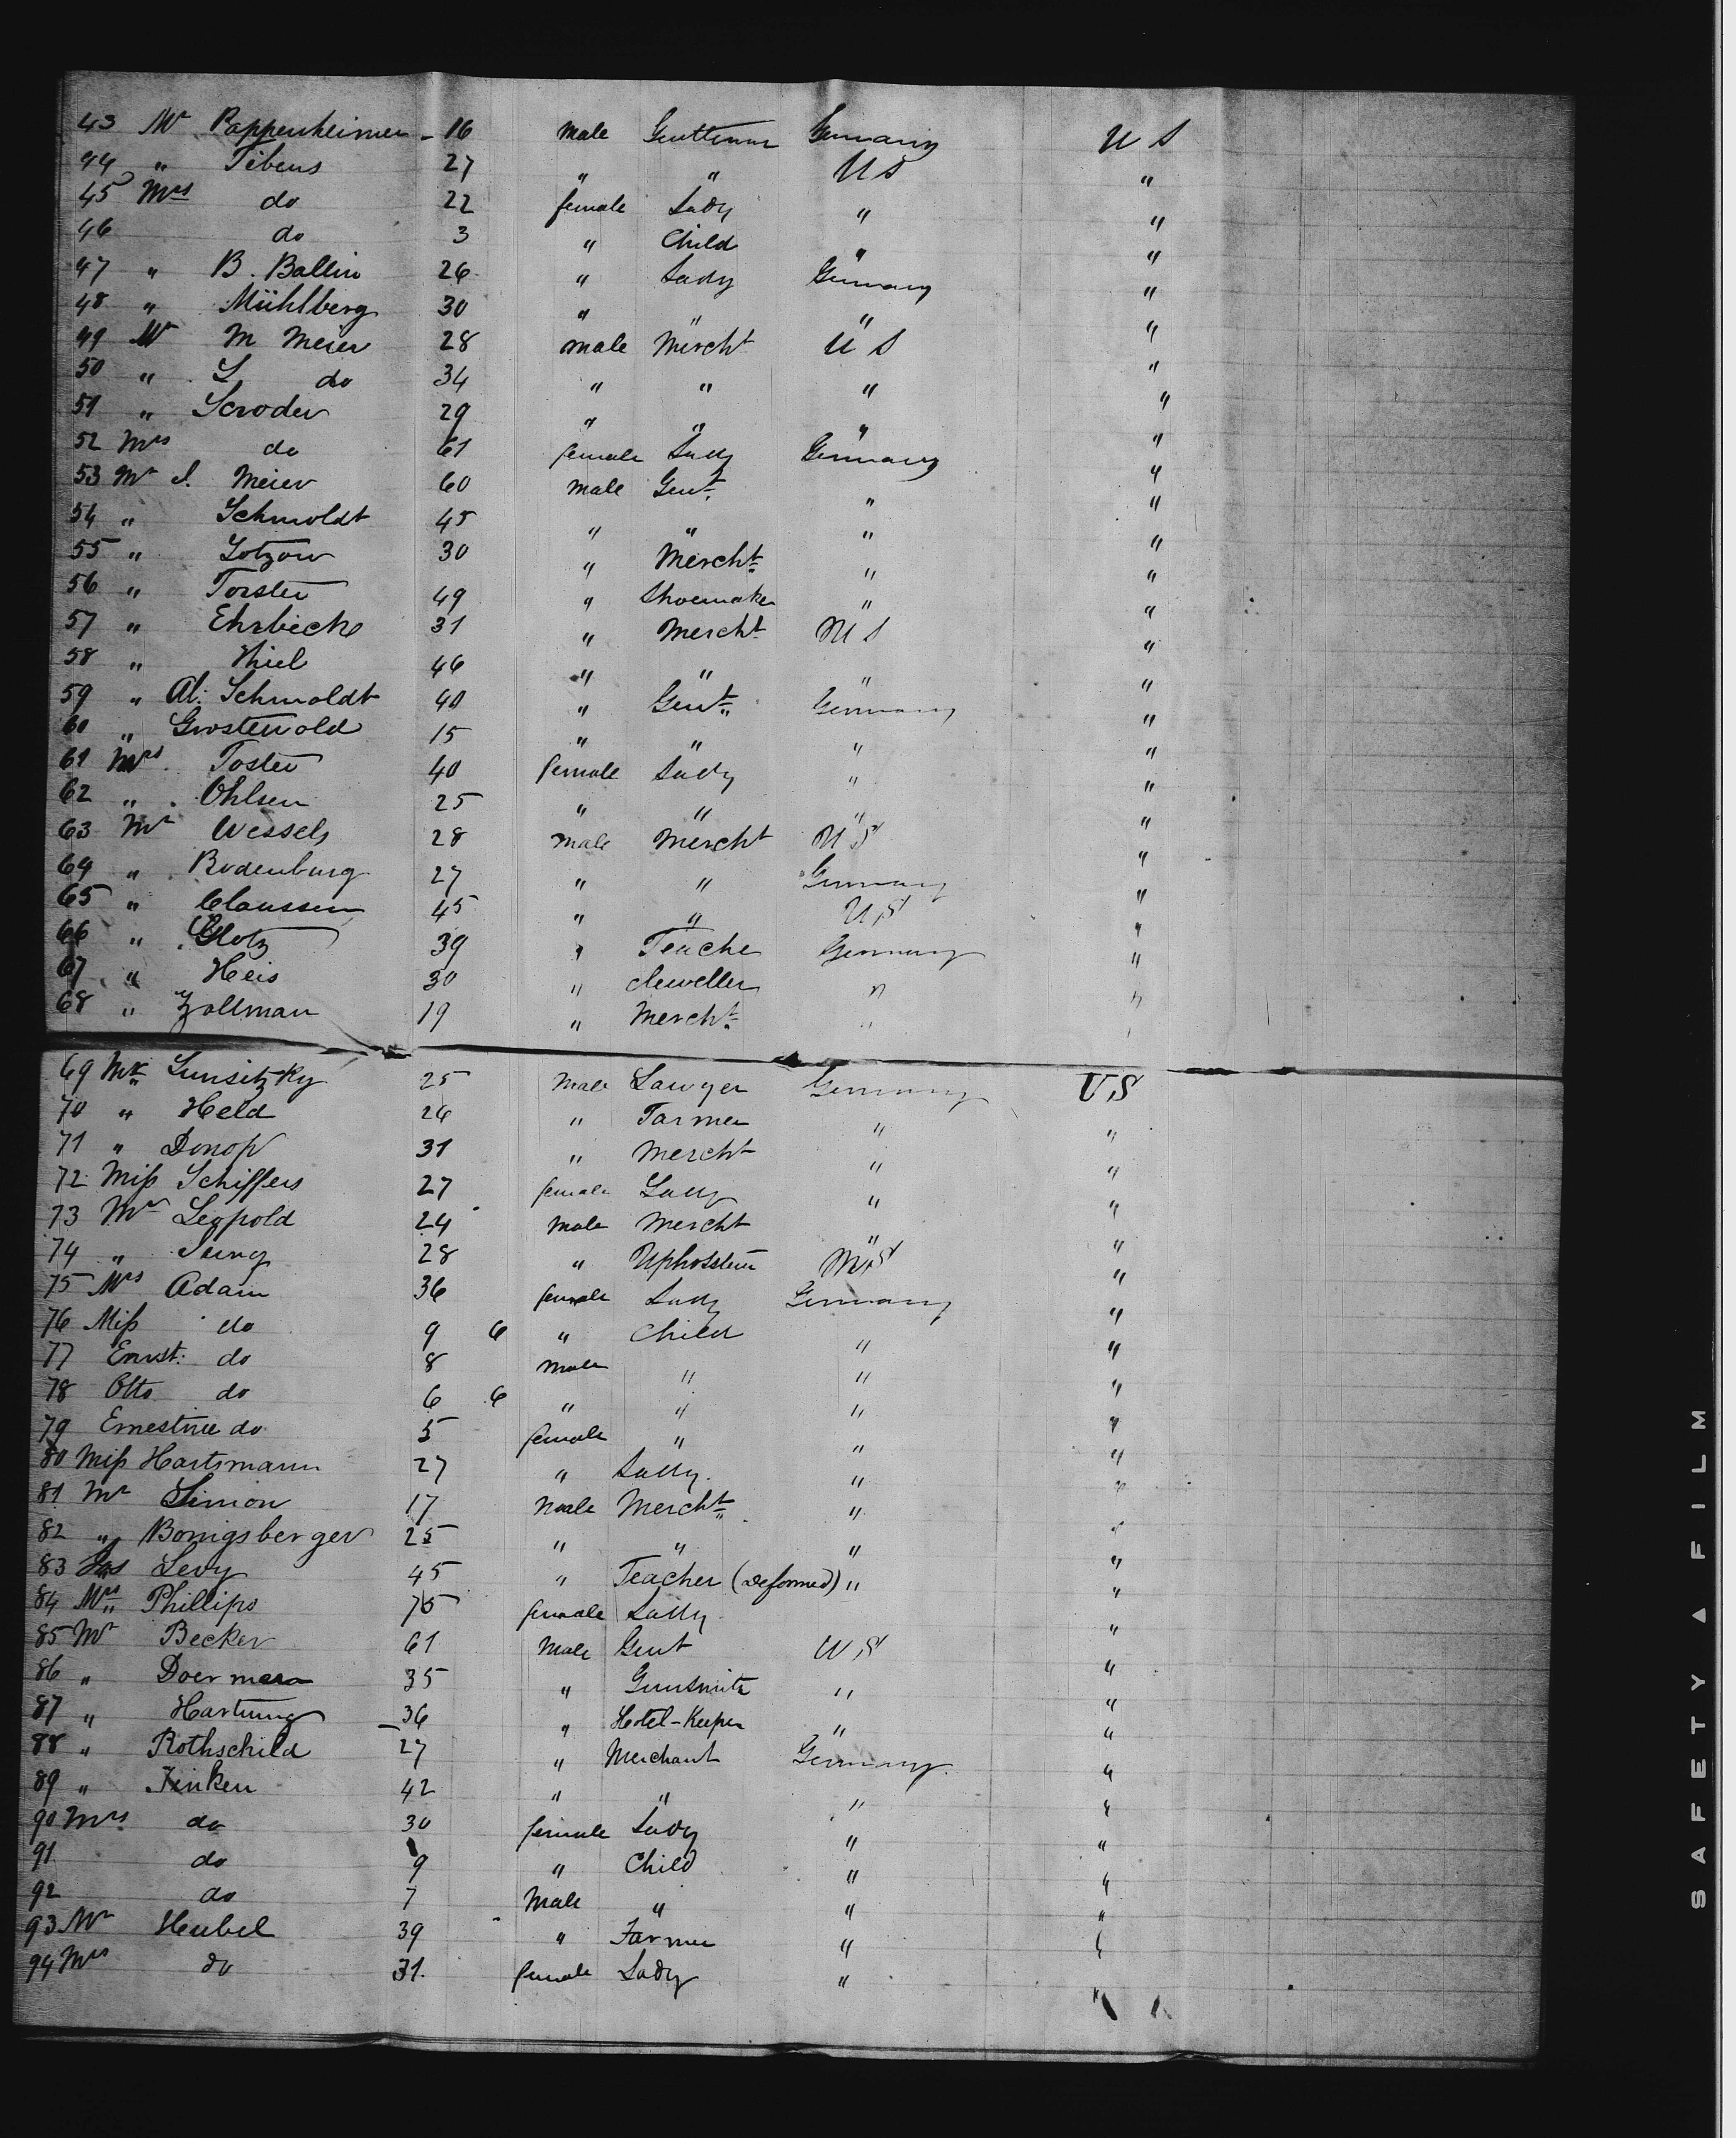 43 Mr Pappenheimer - 16 male Gentleman Germany U S
44 " Tibens 27 " " U S "
45 Mrs do 22 female Lady " "
46 do 3 " Child " "
47 " B. Ballin 26 " Lady Germany "
48 " Mühlberg 30 " " " "
49 Mr M Meier 28 male Mercht U S "
50 " S do 34 " " " "
51 " Scroder 29 " " " "
52 Mrs do 61 female Lady Germany "
53 Mr J. Meier 60 male Gent. " "
54 " Schmoldt 45 " " " "
55 " Lotzow 30 " Mercht " "
56 " Torster 49 " Shoemaker " "
57 " Ehrbeck 31 " Mercht U S "
58 " Thiel 46 " " " "
59 " Al: Schmoldt 40 " Gent. Germany "
60 " Grostewold 15 " " " "
61 Mrs. Toster 40 female Lady " "
62 " Ohlsen 25 " " " "
63 Mr Wessels 28 male Mercht U S "
64 " Rodenburg 27 " " Germany "
65 " Claussen 45 " " U S "
66 " Glotz 39 " Teacher Germany "
67 " Heis 30 " Jeweller " "
68 " Zollman 19 " Mercht " "
69 Mr Lunsitzky 25 Male Lawyer Germany U S
70 " Held 26 " Farmer " "
71 " Donop 31 " Mercht " "
72 Miss Schiffers 27 female Lady " "
73 Mr Leopold 24 male Mercht " "
74 " 28 " U S "
75 Mrs Adam 36 female Lady Germany "
76 Miss do 9 6 " Child " "
77 Ernst: do 8 male " " "
78 Otto do 6 6 " " " "
79 Ernestine do 5 female " " "
80 Miss Hartsmann 27 " Lady. " "
81 Mr Simon 17 Male Mercht " "
82 " Bonigsberger 25 " " " "
83 Jas Levy 45 " Teacher (deformed) " "
84 Mrs Phillips 75 female Lady "
85 Mr Becker 61 Male Gent U S "
86 " Doermann 35 " Gunsmith " "
87 " Hartung 36 " Hotel-Keeper " "
88 " Rothschild 27 " Merchant Germany. "
89 " Finken 42 " " " "
90 Mrs. do 30 female Lady " "
91 do 9 " Child " "
92 do 7 Male " " "
93 Mr Heubel 39 " Farmer " "
94 Mrs do 31. female Lady "
SAFETY ▲ FILM